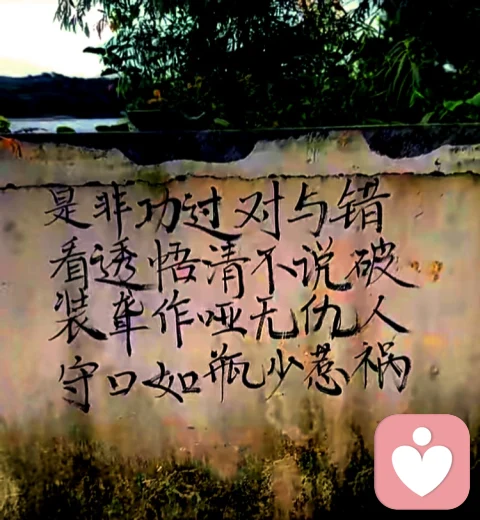 是非功过对与错
看透悟清不说破
装聋作哑无仇人
守口如瓶少惹祸